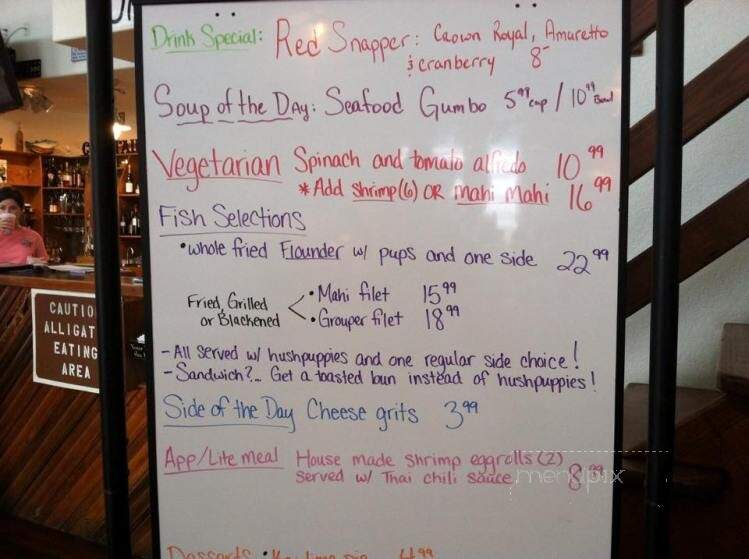 Drink Special: Red Snapper: Crown Royal, Amaretto
& cranberry 8-
Soup of the Day: Seafood Gumbo 5.99 cup / 10.99 Bowl
Vegetarian Spinach and tomato alfredo 10 99
* Add shrimp (6) OR mahi mahi 16 99
Fish Selections
• whole fried Flounder w/ pups and one side 22 99
Fried, Grilled
or Blackened
• Mahi filet 15 99
• Grouper filet 18 99
- All served w/ hushpuppies and one regular side choice!
- Sandwich?... Get a toasted bun instead of hushpuppies!
Side of the Day Cheese grits 3 99
App/Lite meal House made shrimp eggrolls (2)
served w/ Thai chili sauce 8 99
Desserts • Key lime pie 4 99
CAUTIO
ALLIGAT
EATING
AREA
menupix